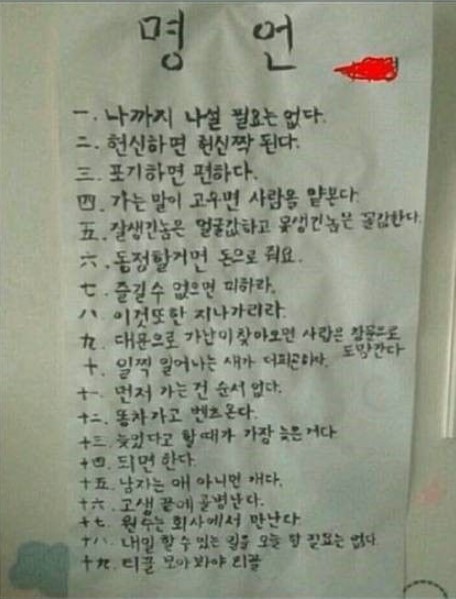 명 언
一. 나까지 나설 필요는 없다.
二. 헌신하면 헌신짝 된다.
三. 포기하면 편하다.
四. 가는 말이 고우면 사람을 얕본다.
五. 잘생긴놈은 얼굴값하고 못생긴놈은 꼴값한다.
六. 동정할거면 돈으로 줘요.
七. 즐길수 없으면 피하라.
八. 이것또한 지나가리라.
九. 대문으로 가난이찾아오면 사람은 창문으로
도망간다
十. 일찍 일어나는 새가 더피곤하다.
十一. 먼저 가는건 순서 없다.
十二. 똥차가고 벤츠온다.
十三. 늦었다고 할때가 가장 늦은거다.
十四. 되면 한다.
十五. 남자는 애 아니면 개다.
十六. 고생 끝에 골병난다.
十七. 원수는 회사에서 만난다
十八. 내일 할 수 있는 일을 오늘 할 필요는 없다
十九. 티끌 모아 봐야 티끌